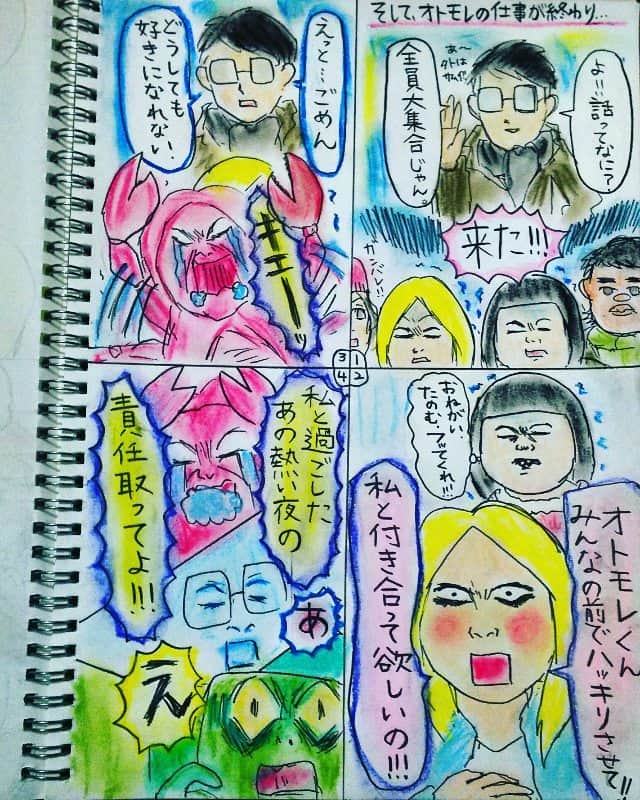 そして、オトモレの仕事が終わり…
よぉ!!話ってなに?
あ〜
外は
サムイ
全員大集合じゃん。
来た!!!
ガンバレ!!
1
2
3
4
オトモレくん
みんなの前でハッキリさせて!!
おねがい
たのむ、フッてくれ!!!
私と付き合って欲しいの!!!
えっと…ごめん
どうしても
好きになれない.
ギエーッ
私と過ごした
あの熱い夜の
責任取ってよ!!!
あ
え